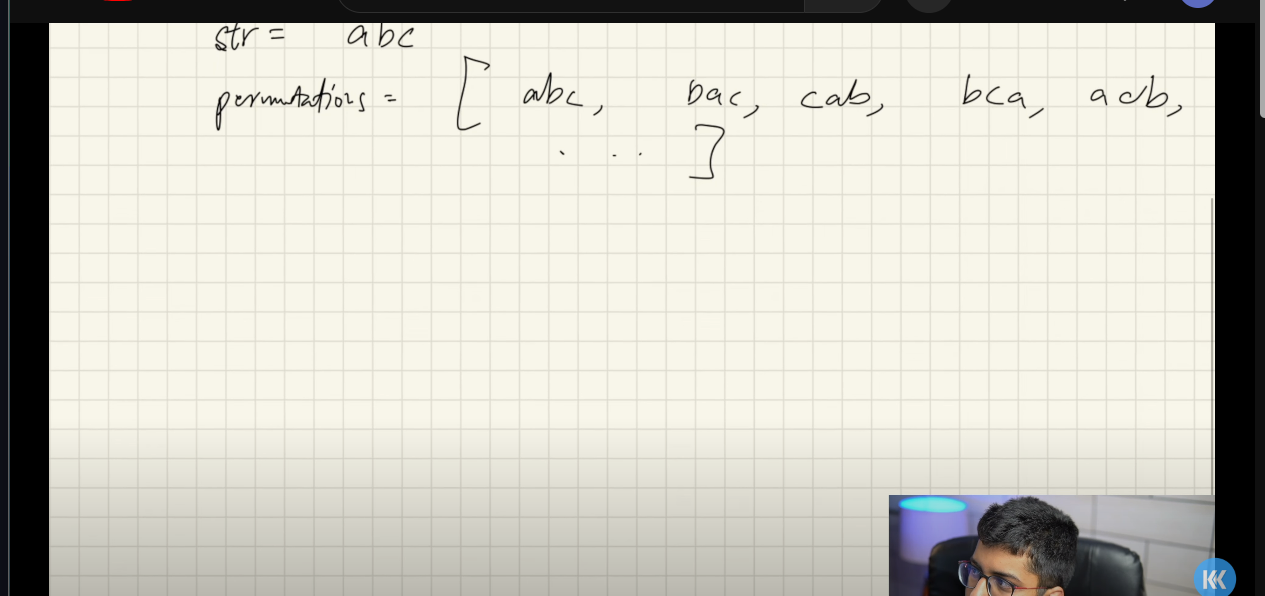 str = abc
permutations = [ abc, bac, cab, bca, acb,
. . . ]
K